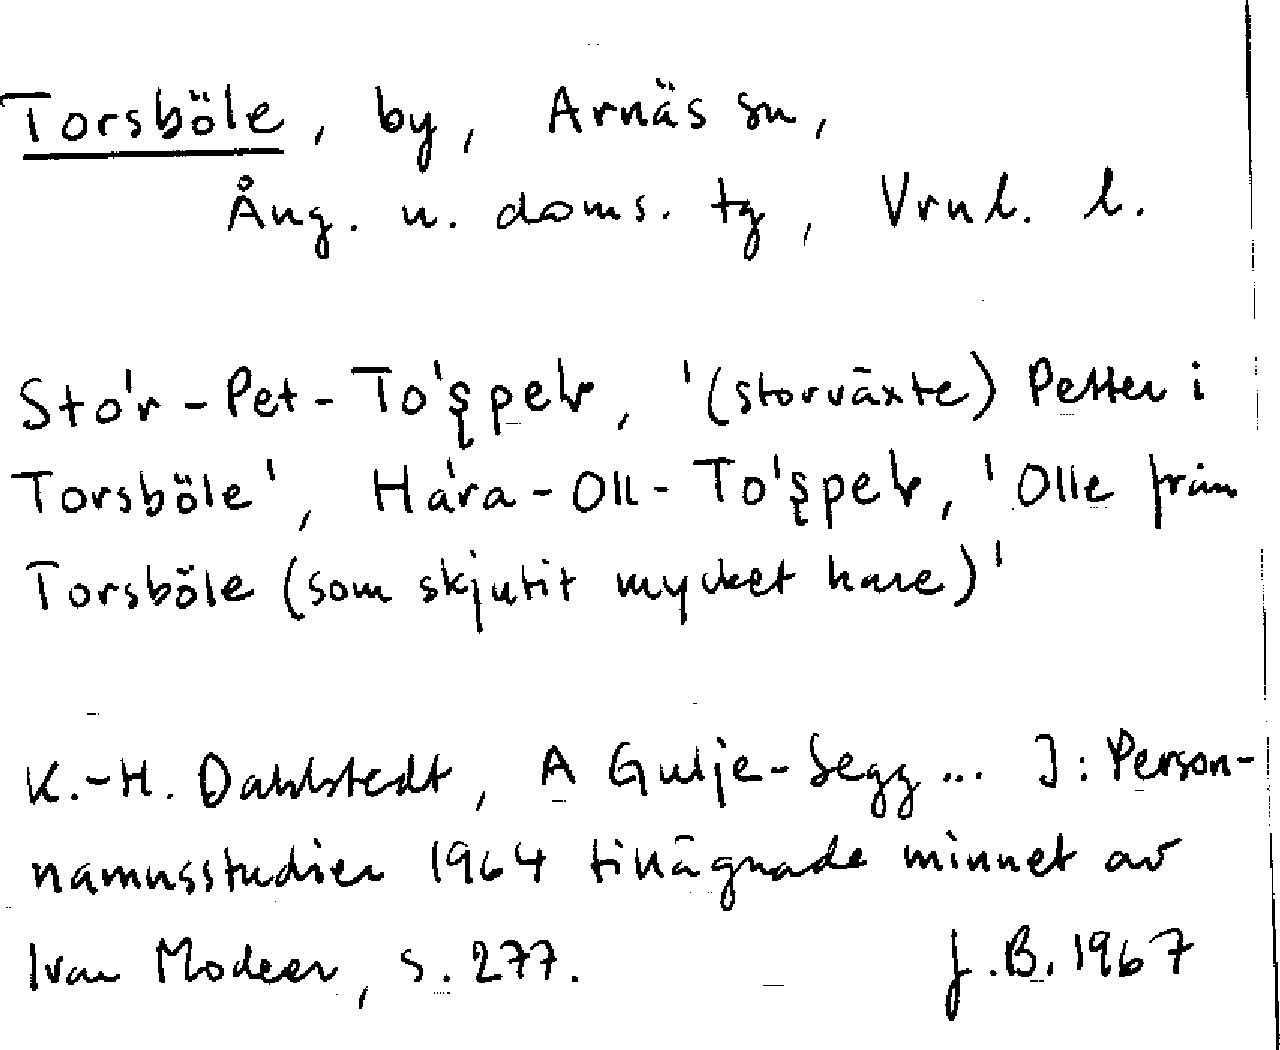 Torsböle, by, Arnäs sn,
Ång. n. doms. tg, Vrnl. l.
Sto'r-Pet-To'ʂpelr, '(storväxte) Petter i
Torsböle', Ha'ra-Oll-To'ʂpelr, 'Olle från
Torsböle (som skjutit mycket hare)'
K.-H. Dahlstedt, A Gulje-Segg... I: Person-
namnsstudier 1964 tillägnade minnet av
Ivar Modeer, s. 277. J.B. 1967